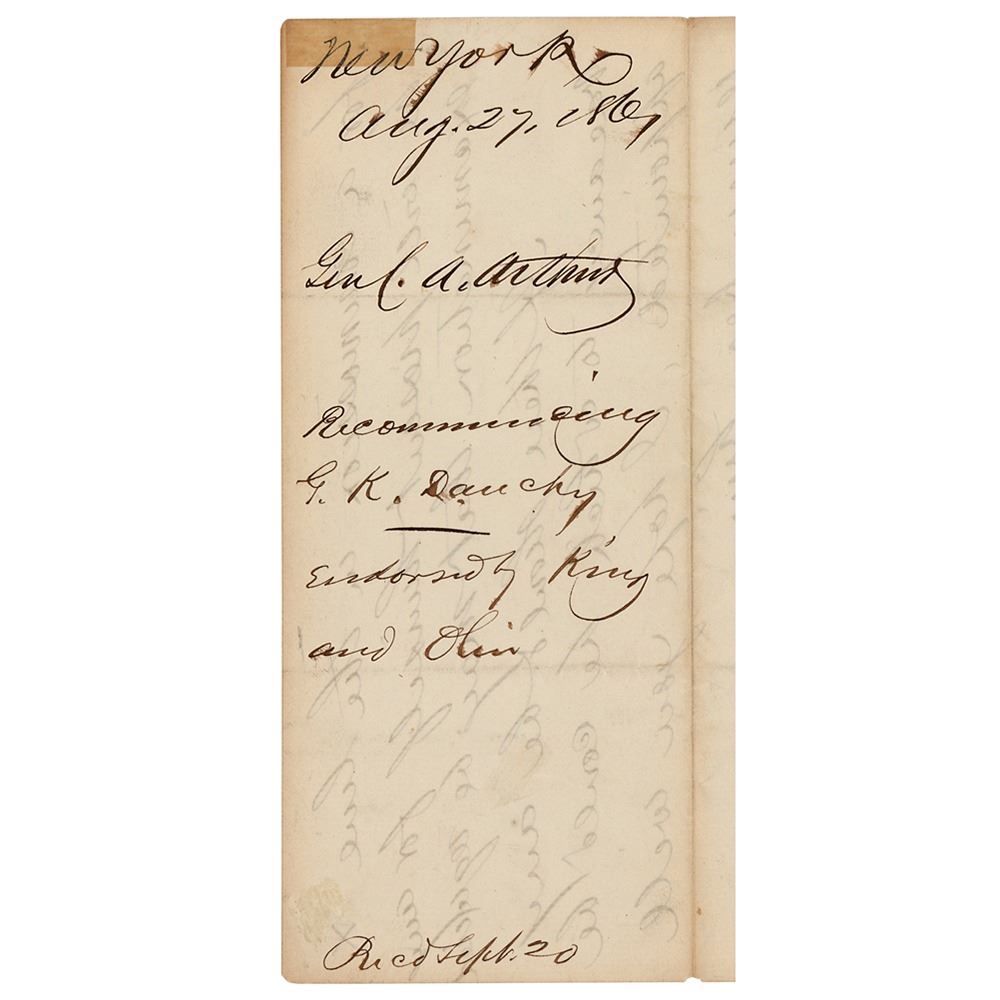 New York
Aug. 27, 1861
Gen C. A. Arthur
Recommending
G. K. Dauchy
Endorsed by King
and Olin
Recd Sept. 20